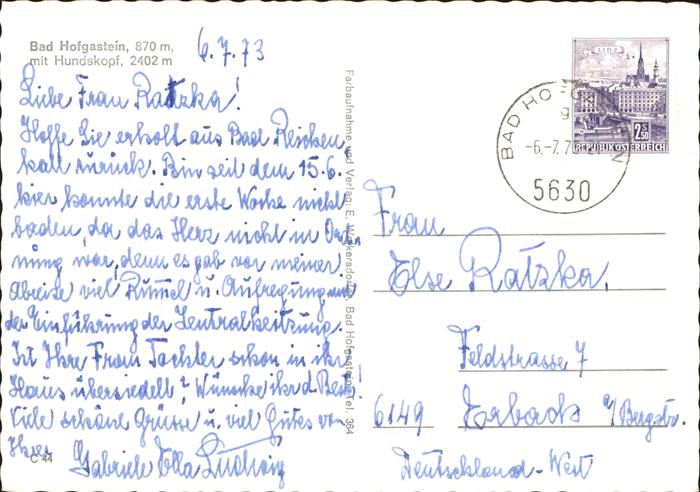 Bad Hofgastein, 870 m,
mit Hundskopf, 2402 m
6.7.73
Liebe Frau Ratzka!
Hoffe Sie erholt aus Bad Reichen
hall zurück. Bin seit dem 15.6.
hier konnte die erste Woche nicht
baden, da das Herz nicht in Ord-
nung war, denn es gab vor meiner
Abreise viel Rummel u. Aufregung mit
der Einführung der Zentralheitzung.
Ist Ihre Frau Tochter schon in ihr
Haus übersiedelt? Wünsche ihr d. Beste
Viele schöne Grüsse u. viel Gutes von
Ihrer Gabriele Ella Ludwig
C 44
Farbaufnahme und Verlag: E. Bad Hofgastein, Tel. 364
LINZ
2.50
REPUBLIK ÖSTERREICH
BAD HOFGASTEIN
-6.-7.7
5630
Frau
Else Ratzka,
Feldstrasse 7
6149 Erbach a/Bergstr.
Deutschland-West